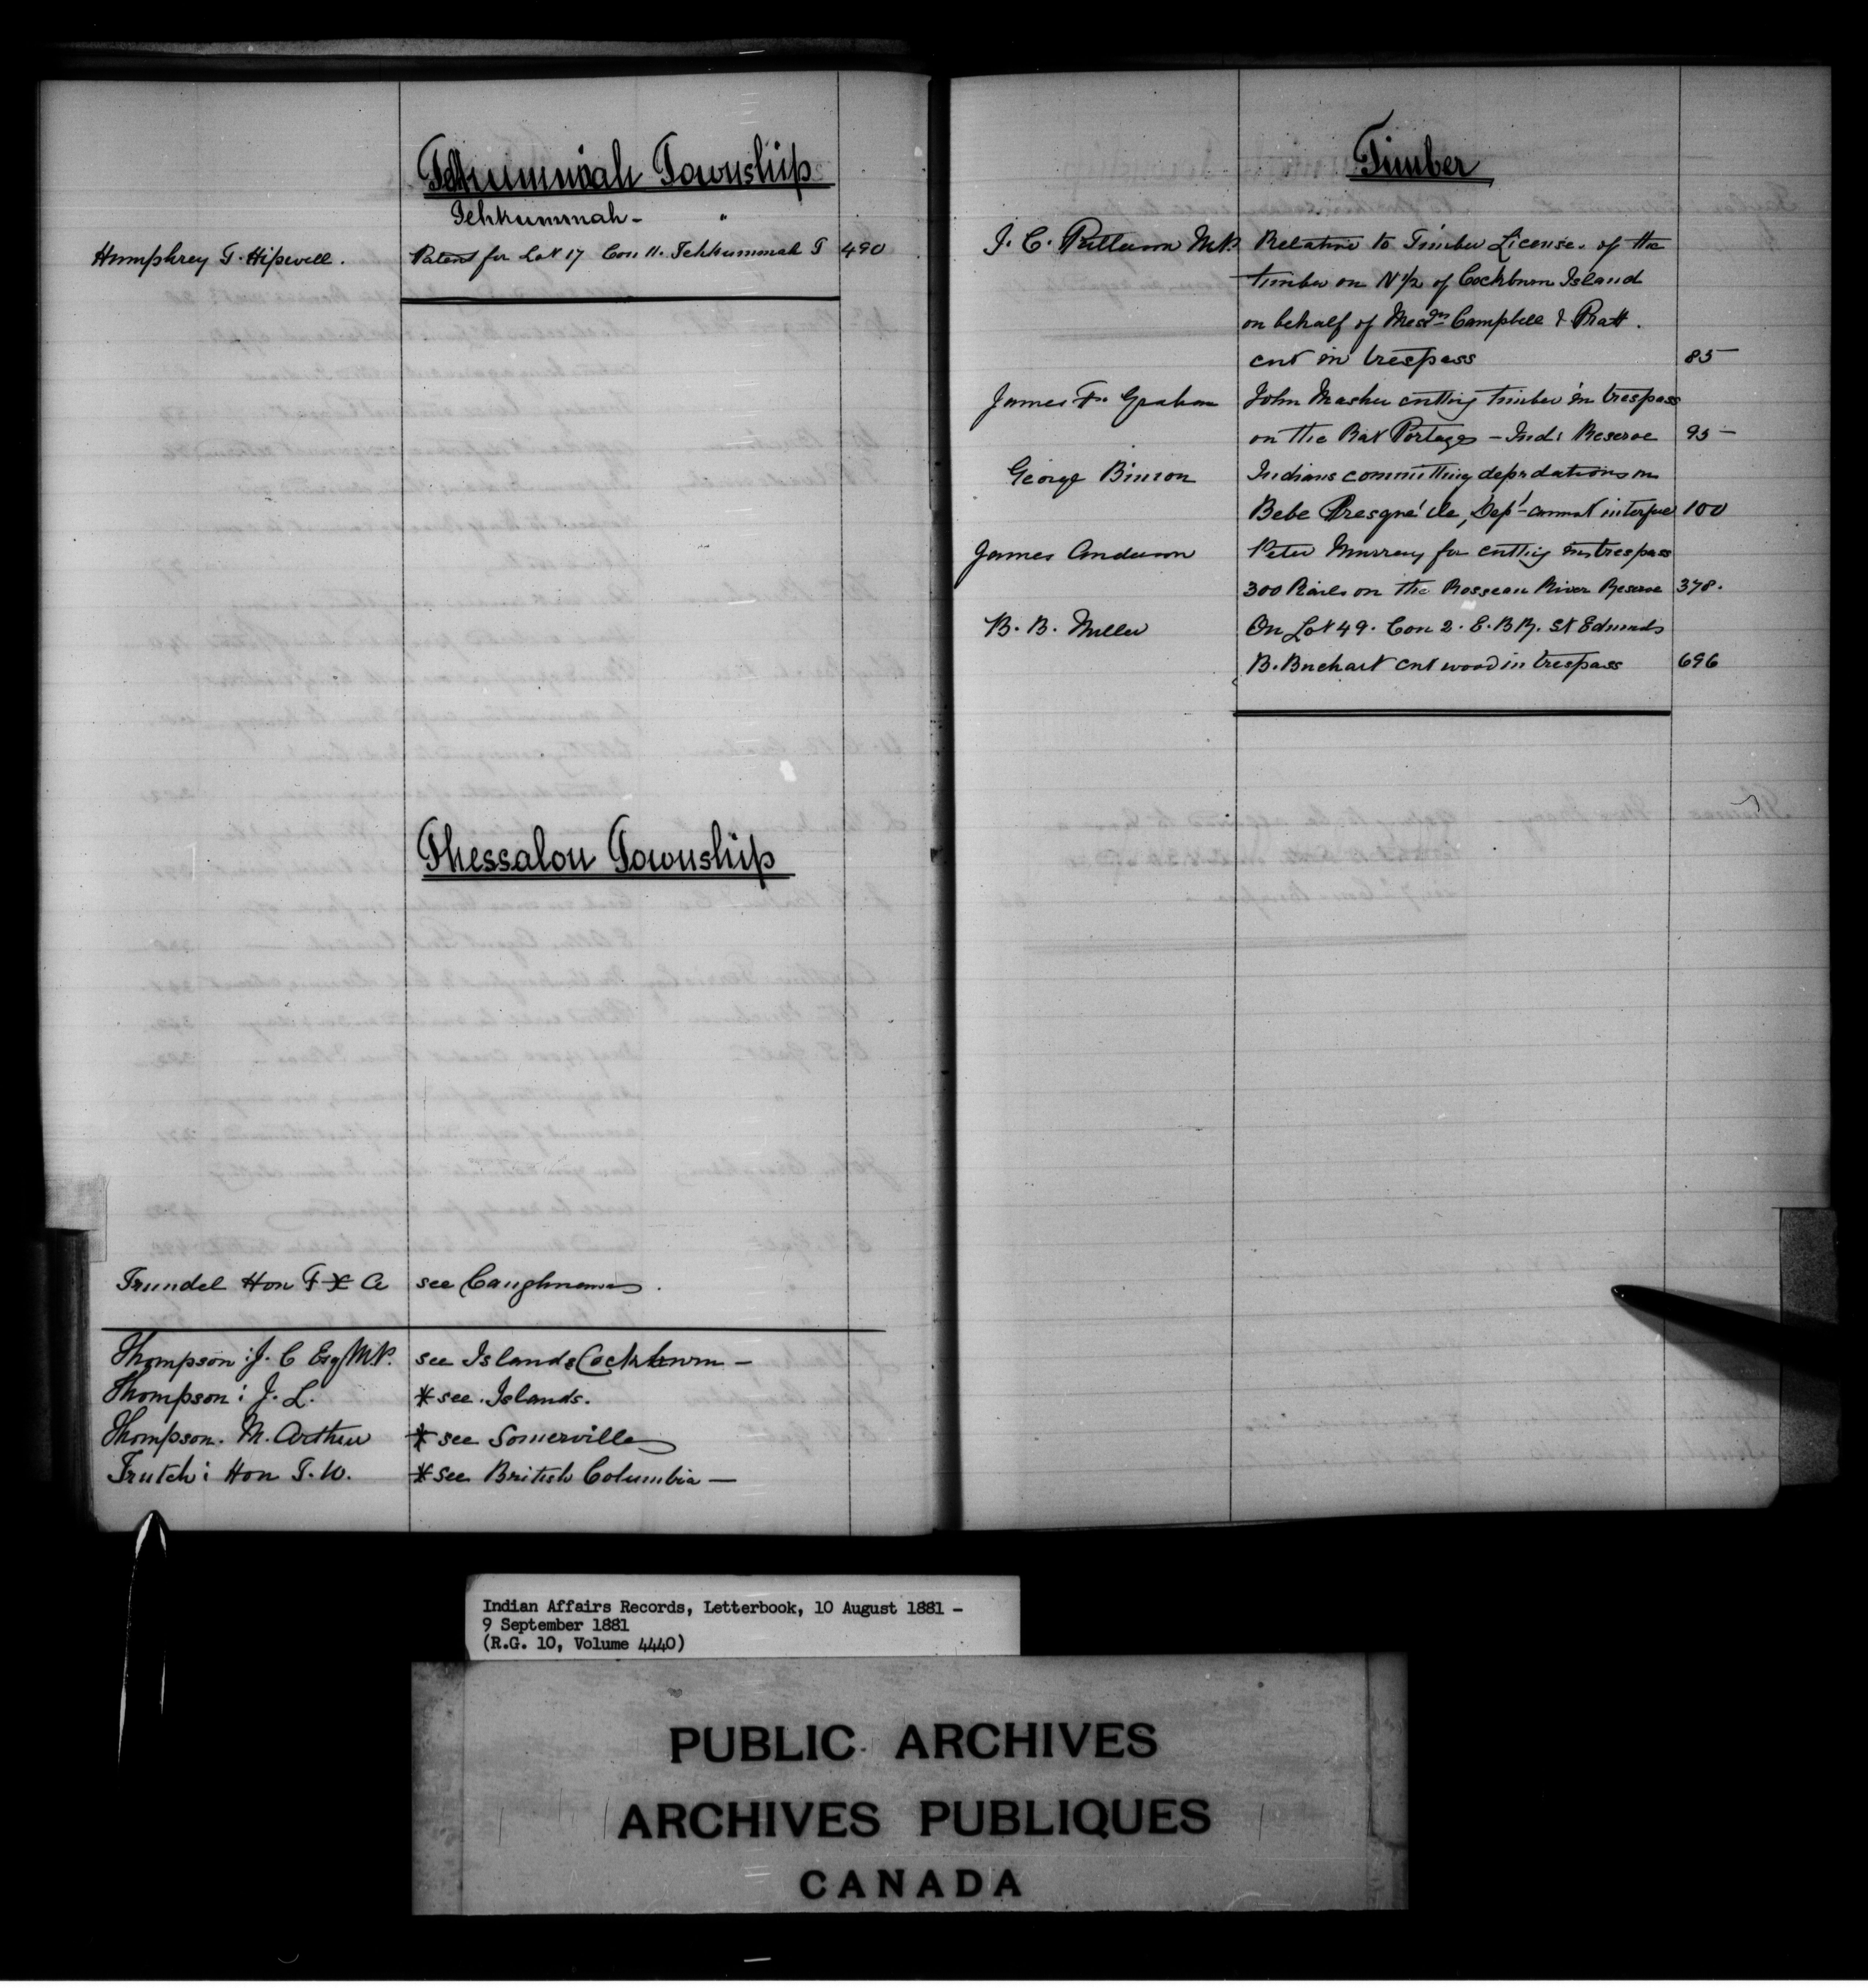 Tehkummah Township
Tehkummah - "
Humphrey T. Hipwell. Patent for Lot 17 Con 11. Tehkummah T 490
Thessalon Township
Trundel Hon F X A see Caughnawa .
Thompson : J. C Esq M.P. see Islands Cockburn -
Thompson : J. L. * see . Islands.
Thompson. M. Arthur * see Somerville
Trutch : Hon J. W. * see British Columbia -
Timber
J. C. Patterson M.P. Relative to Timber License. of the
timber on N 1/2 of Cockburn Island
on behalf of Messrs Campbell & Pratt .
cut in trespass 85 -
James F. Graham John Masher cutting timber in trespass
on the Rat Portage - Ind: Reserve 95 -
George Binion Indians committing depredations on
Bebe Presqu'ile, Dept - cannot interfere 100
James Anderson Peter Murray for cutting in trespass
300 Rails on the Rosseau River Reserve 378.
B. B. Miller On Lot 49. Con 2. E. B R. St Edmunds
B. Buchart cut wood in trespass 696
Indian Affairs Records, Letterbook, 10 August 1881 -
9 September 1881
(R.G. 10, Volume 4440)
PUBLIC ARCHIVES
ARCHIVES PUBLIQUES
CANADA